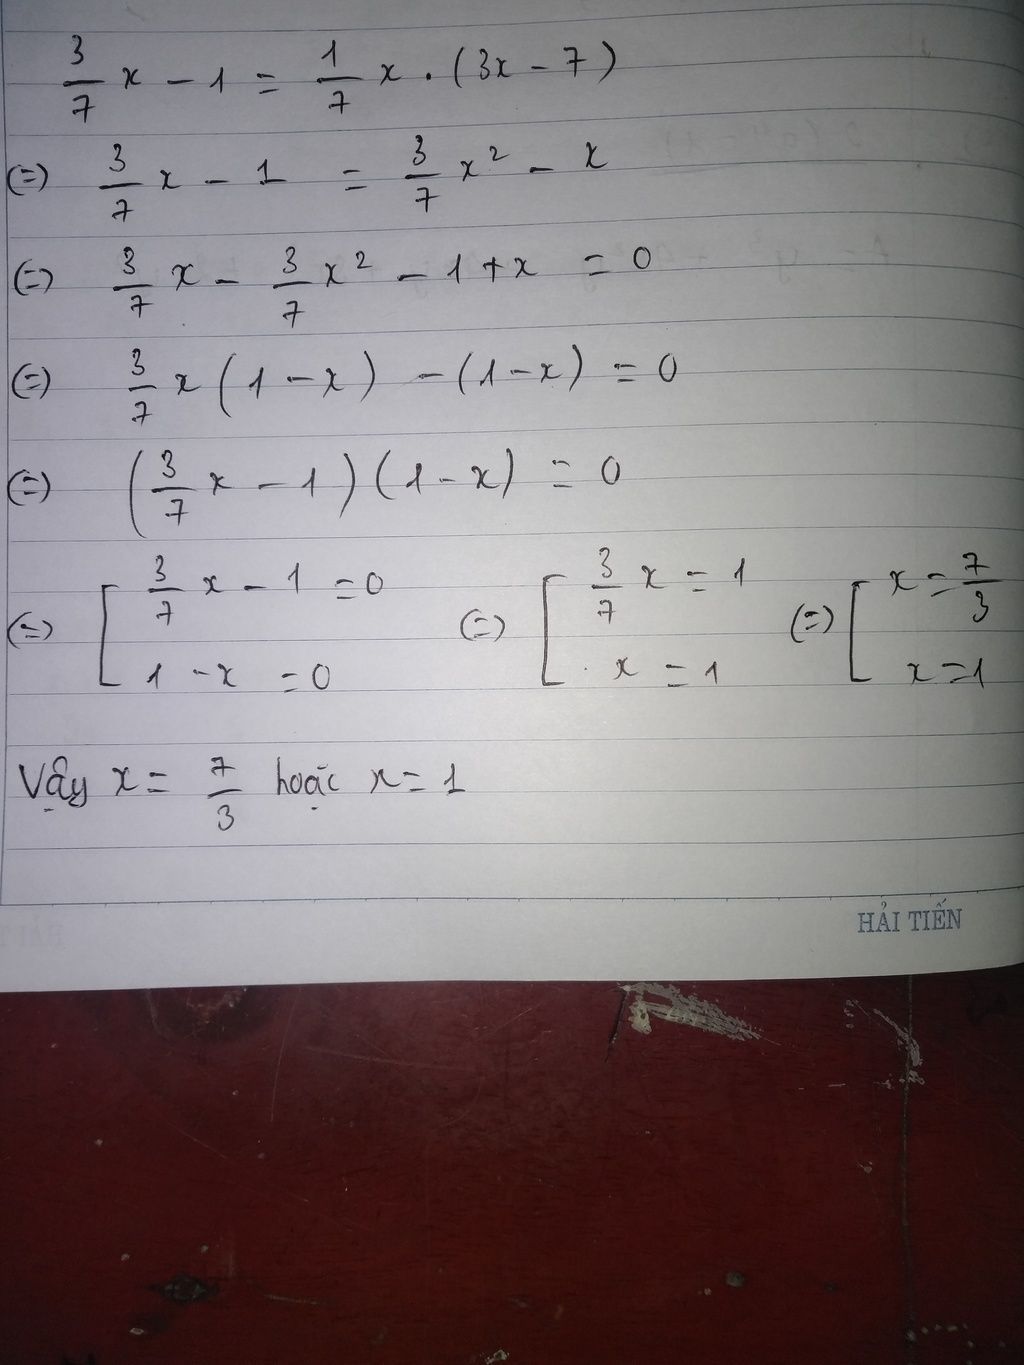 3/7 x - 1 = 1/7 x . (3x - 7)
(=) 3/7 x - 1 = 3/7 x² - x
(=) 3/7 x - 3/7 x² - 1 + x = 0
(=) 3/7 x (1 - x) - (1 - x) = 0
(=) (3/7 x - 1) (1 - x) = 0
(=) [ 3/7 x - 1 = 0 (=) [ 3/7 x = 1 (=) [ x = 7/3
1 - x = 0 x = 1 x = 1
Vậy x = 7/3 hoặc x = 1
HẢI TIẾN